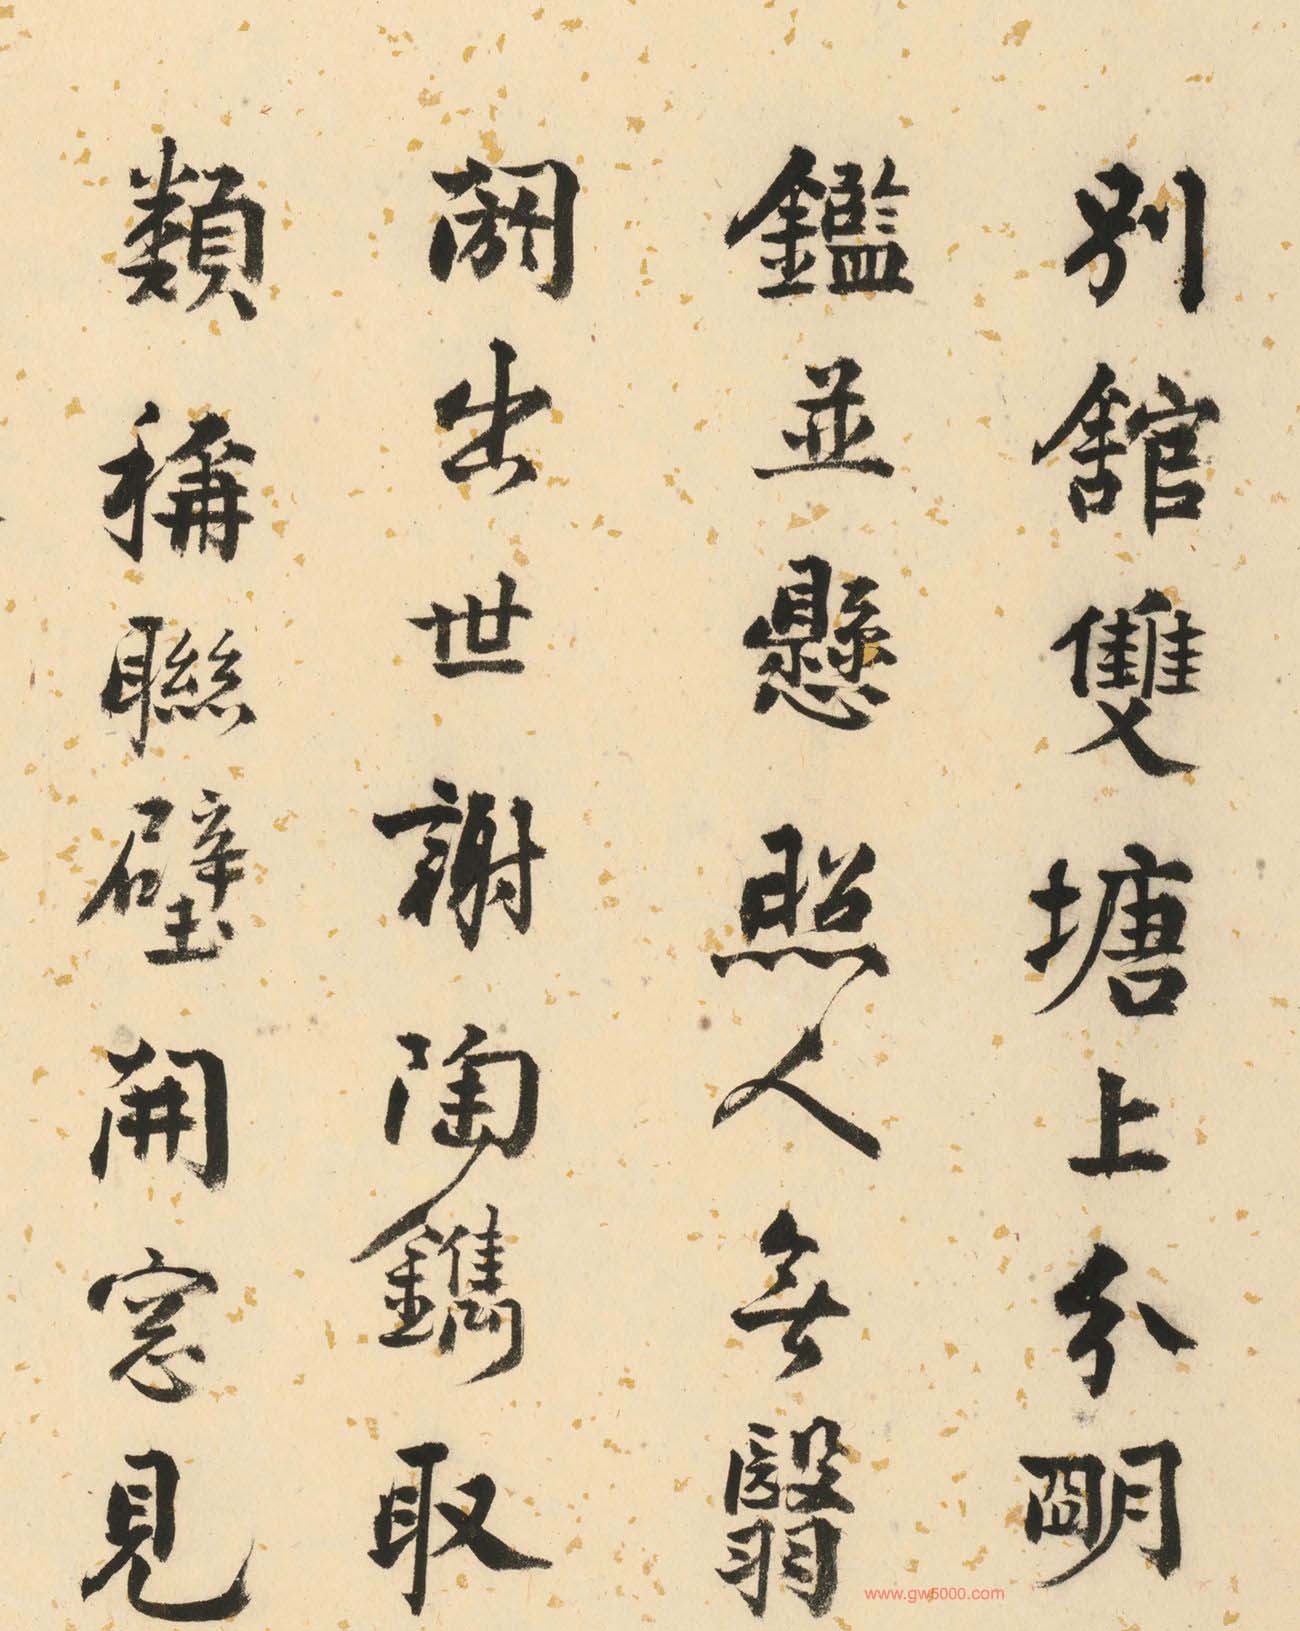 別舘雙塘上分朙
鑑並懸照人無翳
閼出世謝陶鐫取
類稱聯璧開窓見
www.gw5000.com